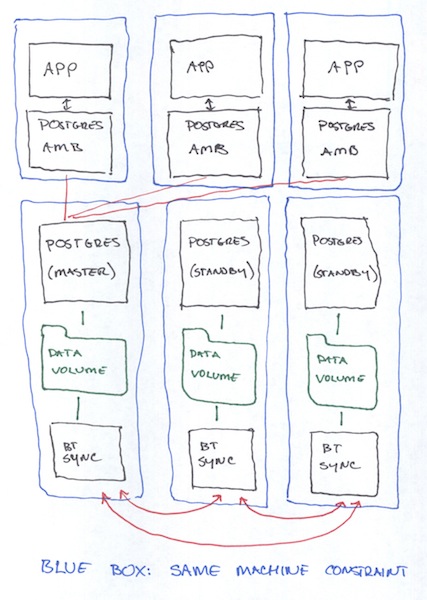 APP
POSTGRES
AMB
APP
POSTGRES
AMB
APP
POSTGRES
AMB
POSTGRES
(MASTER)
DATA
VOLUME
BT
SYNC
POSTGRES
(STANDBY)
DATA
VOLUME
BT
SYNC
POSTGRES
(STANDBY)
DATA
VOLUME
BT
SYNC
BLUE BOX: SAME MACHINE CONSTRAINT